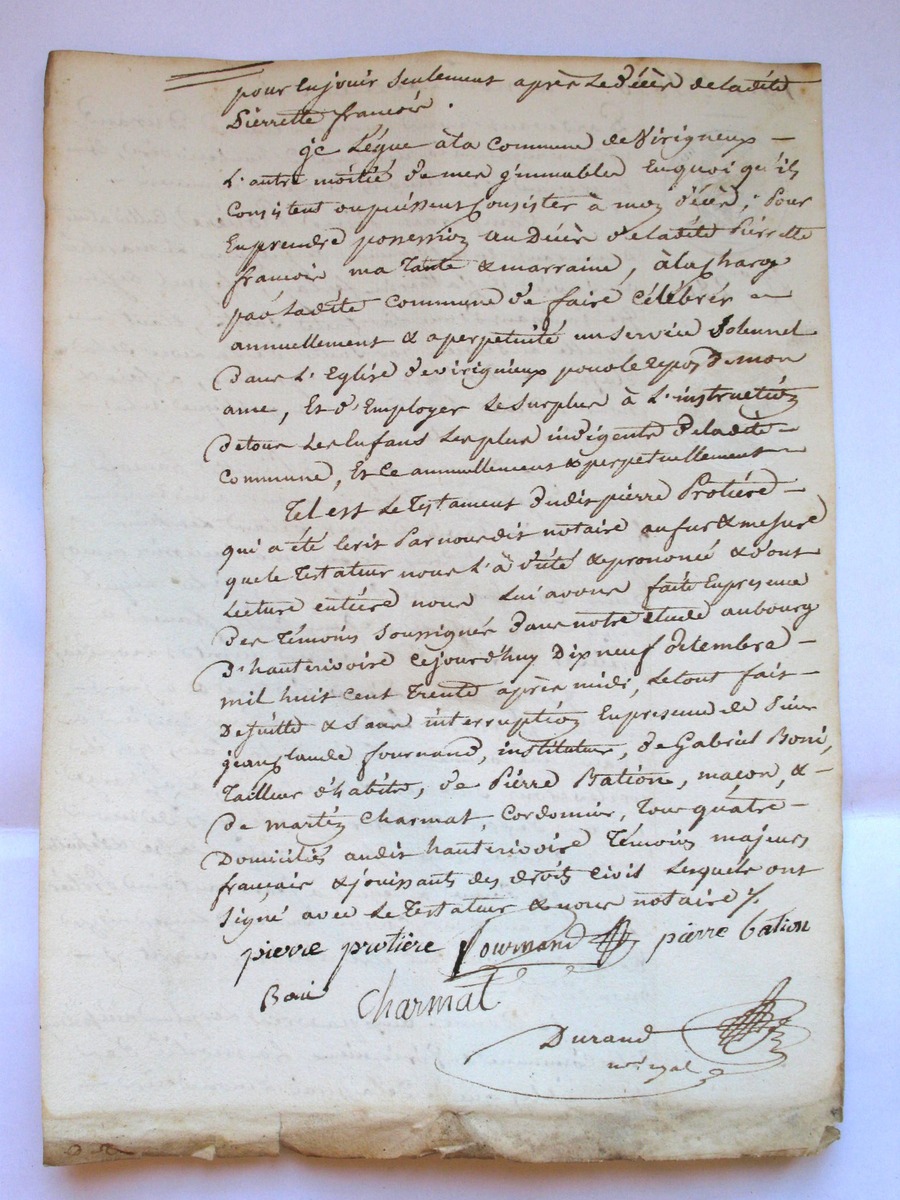 pour En jouir seulement après Le Décès de ladite
Pierrette françois .
Je Légue à la Commune de Virigneux –
L'autre moitié de mes immeubles En quoi qu'ils
Consistent ou puissent Consister à mon décès ; Pour
En prendre possession au Décès de ladite Pierrette
françois ma Tante & marraine, à la charge
par Ladite Commune de faire Célébrer –
annuellement & a perpetuité un service Solennel
Dans L'Eglise de virignieux pour le Repos de mon
ame, Et d'Employer Le surplus à L'instruction
de tous Les Enfans Les plus indigents de ladite –
Commune, Et Ce annuellement & perpetuellement –
Tel est Le Testament dudit pierre Protière –
qui a été Ecrit Par nous dit notaire au fur & mesure
que le Testateur nous L'a dicté & prononcé & dont
Lecture entière nous Lui avons faite En presence
des Témoins soussignés dans notre étude au bourg
d'hauterivoire Ce jourd'huy Dix neuf
mil huit Cent Trente après midi, Le tout fait –
De suitte & sans interruption En presence de Sieur
jean Claude fournand, instituteur, de Gabriel Boni,
Tailleur d'habits, de Pierre Bation, maçon, & –
De martin Charmat, Cordonnier, Tous quatre –
Domiciliés audit hauterivoire Témoins majeurs
français & jouissants des droits Civil Lesquels ont
signé avec Le Testateur & nous notaire /.
pierre protière fournand pierre bation
Boni Charmat
Durand